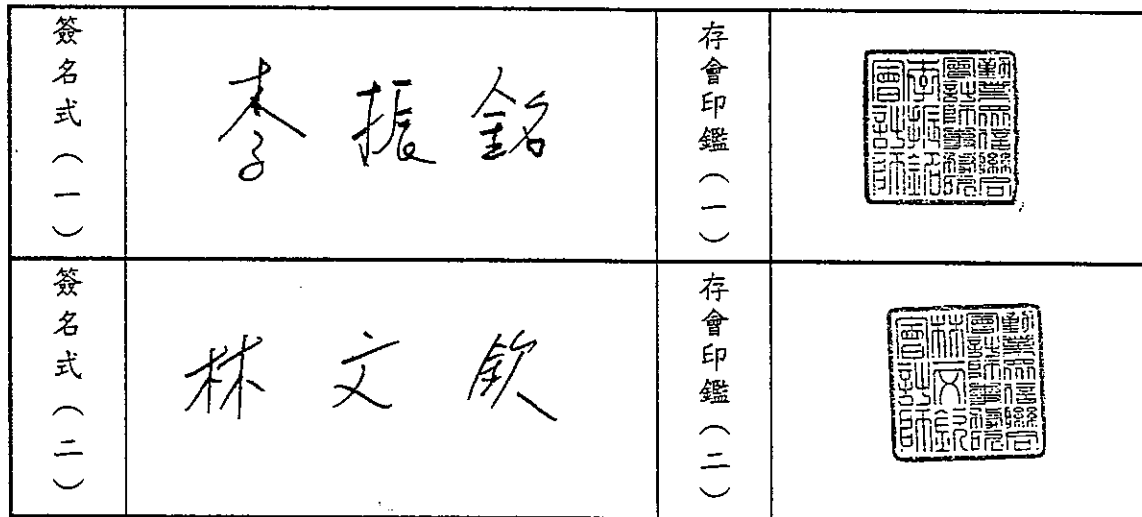 簽名式（一）
李振銘
存會印鑑（一）
勤業眾信聯合
會計師事務所
李振銘
會計師
簽名式（二）
林文欽
存會印鑑（二）
勤業眾信聯合
會計師事務所
林文欽
會計師